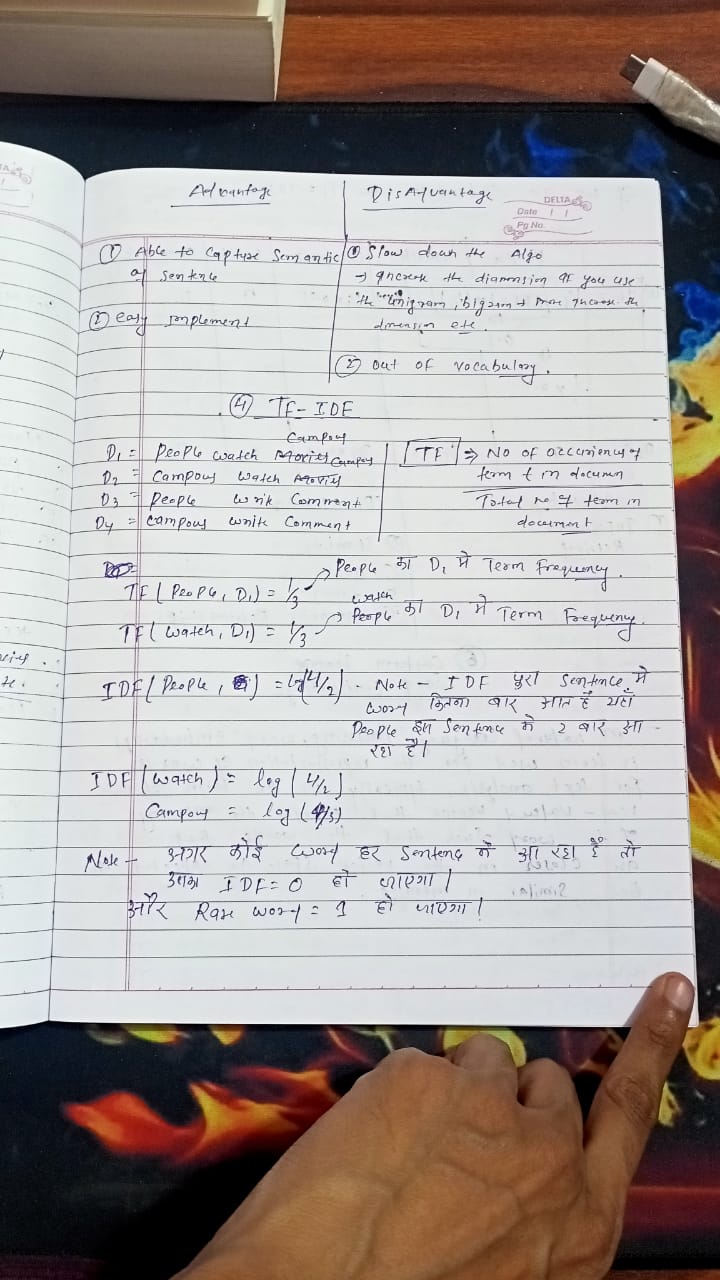 Advantage
DisAdvantage
DELTA
Date
Pg No.
① Able to Capture Semantic
of sentence
② easy implement
① Slow down the Algo
→ Increase the diamension if you use
the unigram, bigram → more increase the
dimension etc.
② out of vocabulary.
④ TF-IDF
Campous
D1 = People watch Campous
D2 = Campous watch Campous
D3 = People write Comment
D4 = Campous write Comment
TF ⇒ No of occuriency of
term t in documen
Total no of term in
document
TF(People, D1) = 1/3 → People का D1 मे Term Frequency.
watch
TF(watch, D1) = 1/3 → People का D1 मे Term Frequency.
IDF(People, ) = log(4/2). Note - IDF पुरा Sentence मे
word कितना बार आत है यहाँ
People इस Sentence मे 2 बार आ
रहा है।
IDF(watch) = log(4/2)
Campous = log(4/3)
Note - अगर कोई word हर Sentence मे आ रहा है तो
उसका IDF=0 हो जाएगा।
और Rare word = 1 हो जाएगा।